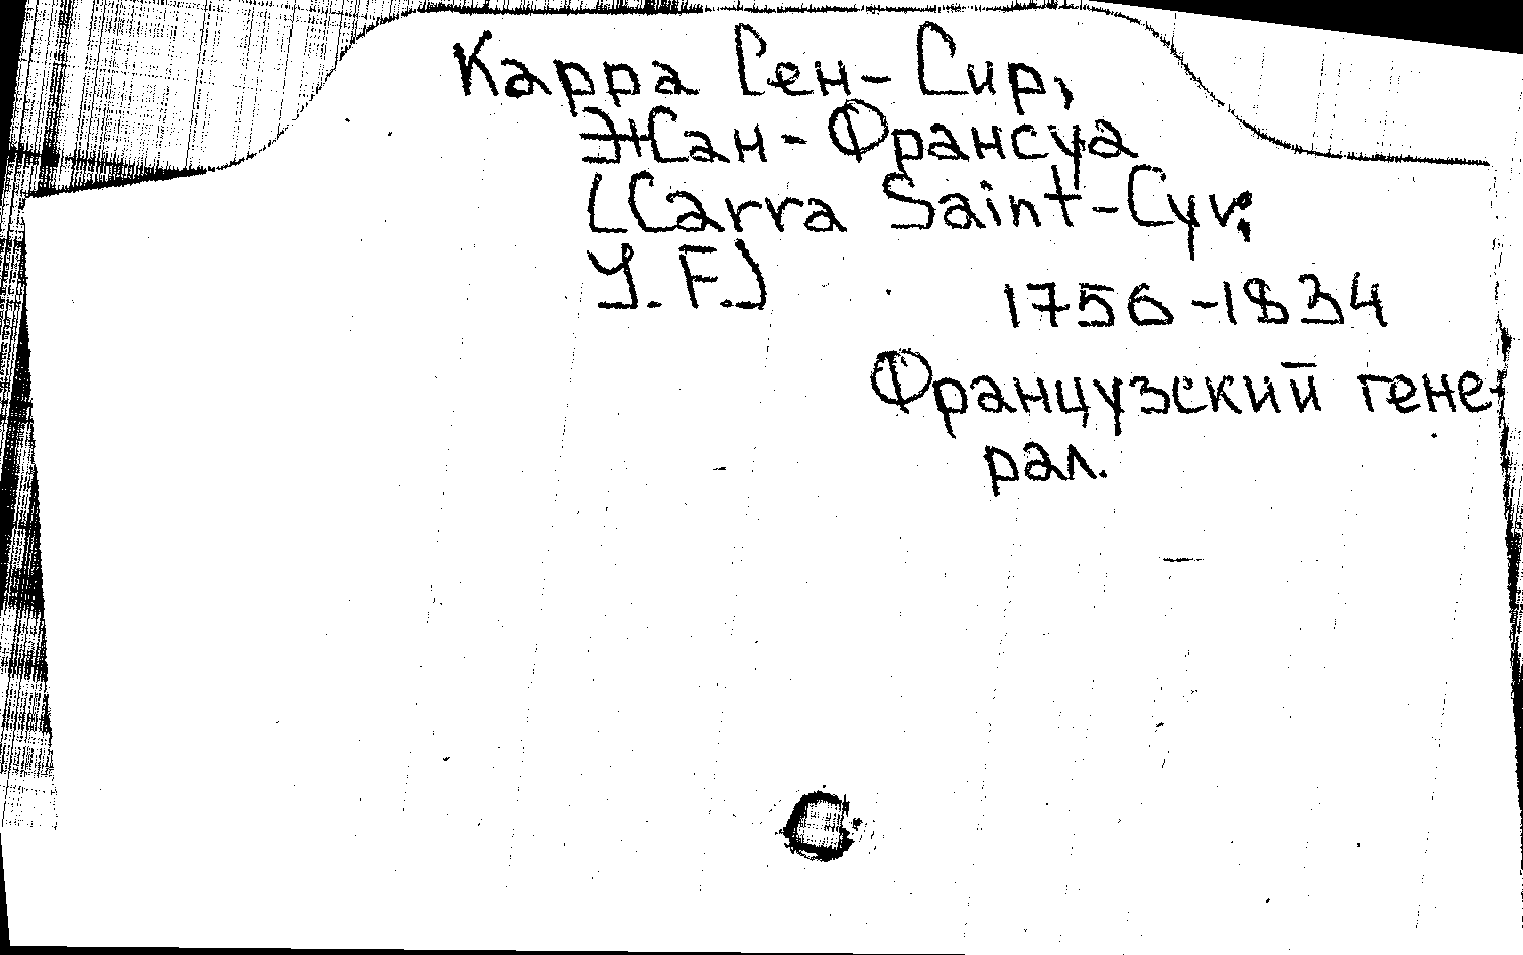 Карра Сен-Сир,
Жан-Франсуа
[Carra Saint-Cyr,
J. F.]
1756-1834
Французский гене-
рал.